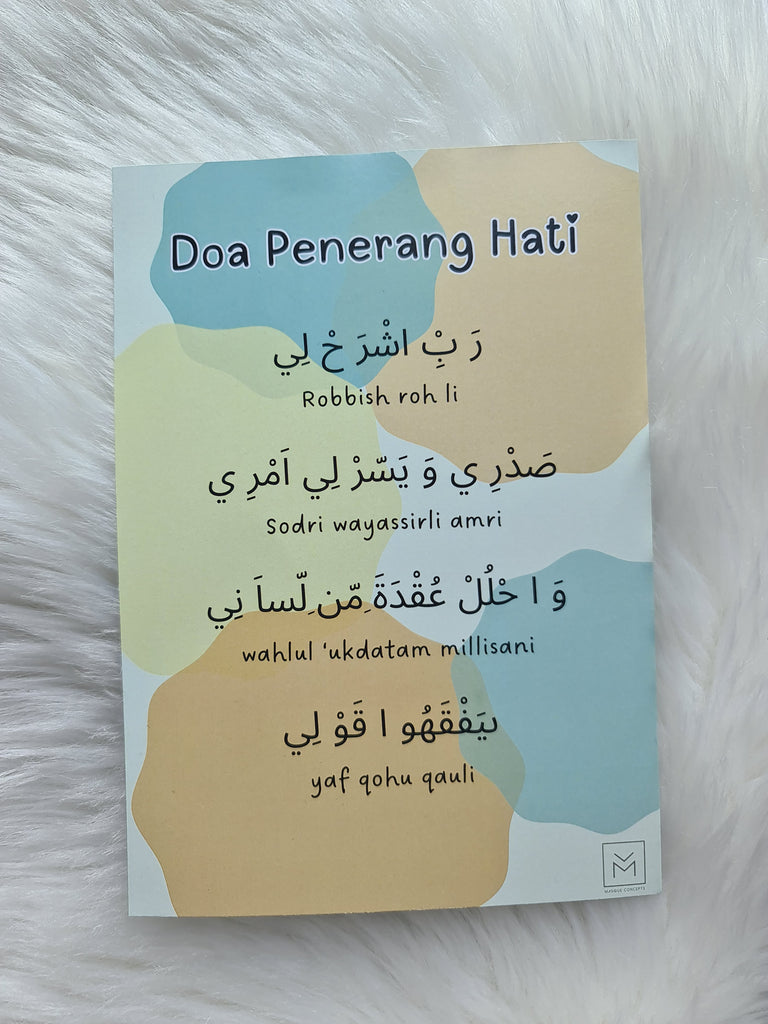 Doa Penerang Hati
رَ بِّ اشْرَ حْ لِي
Robbish roh li
صَدْرِ ي وَ يَسّرْ لِي اَمْرِ ي
Sodri wayassirli amri
وَ ا حْلُلْ عُقْدَةَ مِّن لِّساَ نِي
wahlul 'ukdatam millisani
يَفْقَهُو ا قَوْ لِي
yaf qohu qauli
MASQUE CONCEPTS